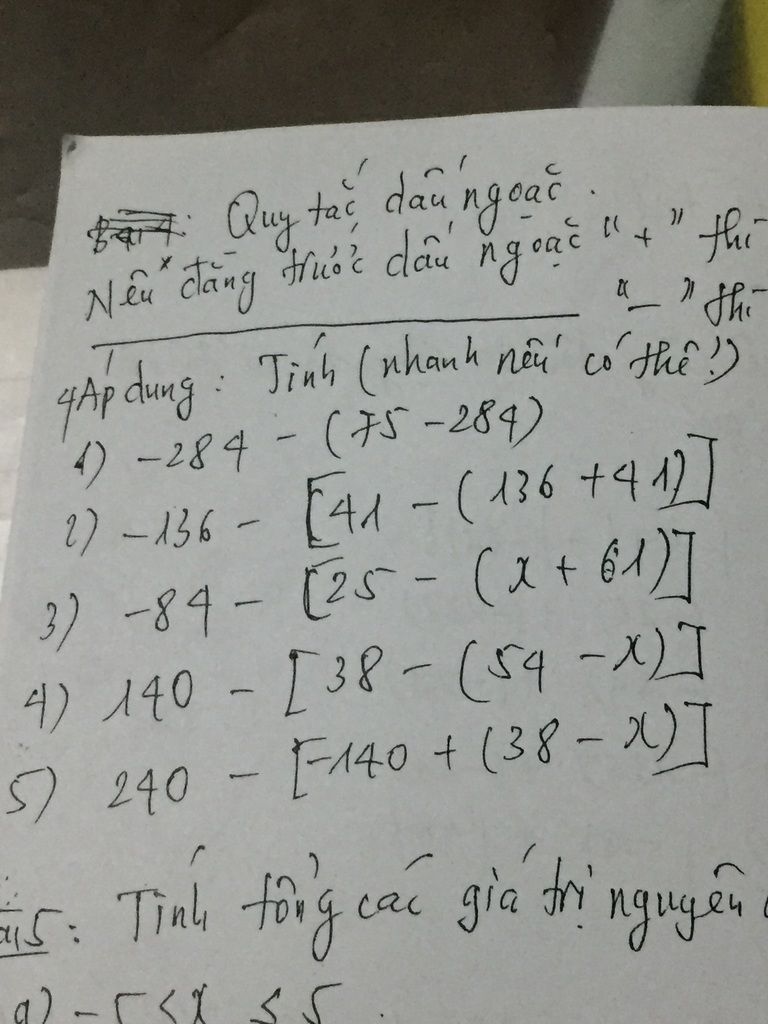 : Quy tắc dấu ngoặc.
Nếu * đằng trước dấu ngoặc "+" thì
"_" thì
Áp dụng: Tính (nhanh nếu có thể!)
1) -284 - (75 - 284)
2) -136 - [41 - (136 + 41)]
3) -84 - [25 - (x + 61)]
4) 140 - [38 - (54 - x)]
5) 240 - [-140 + (38 - x)]
5: Tính tổng các giá trị nguyên
a) -5 < x ≤ 5.